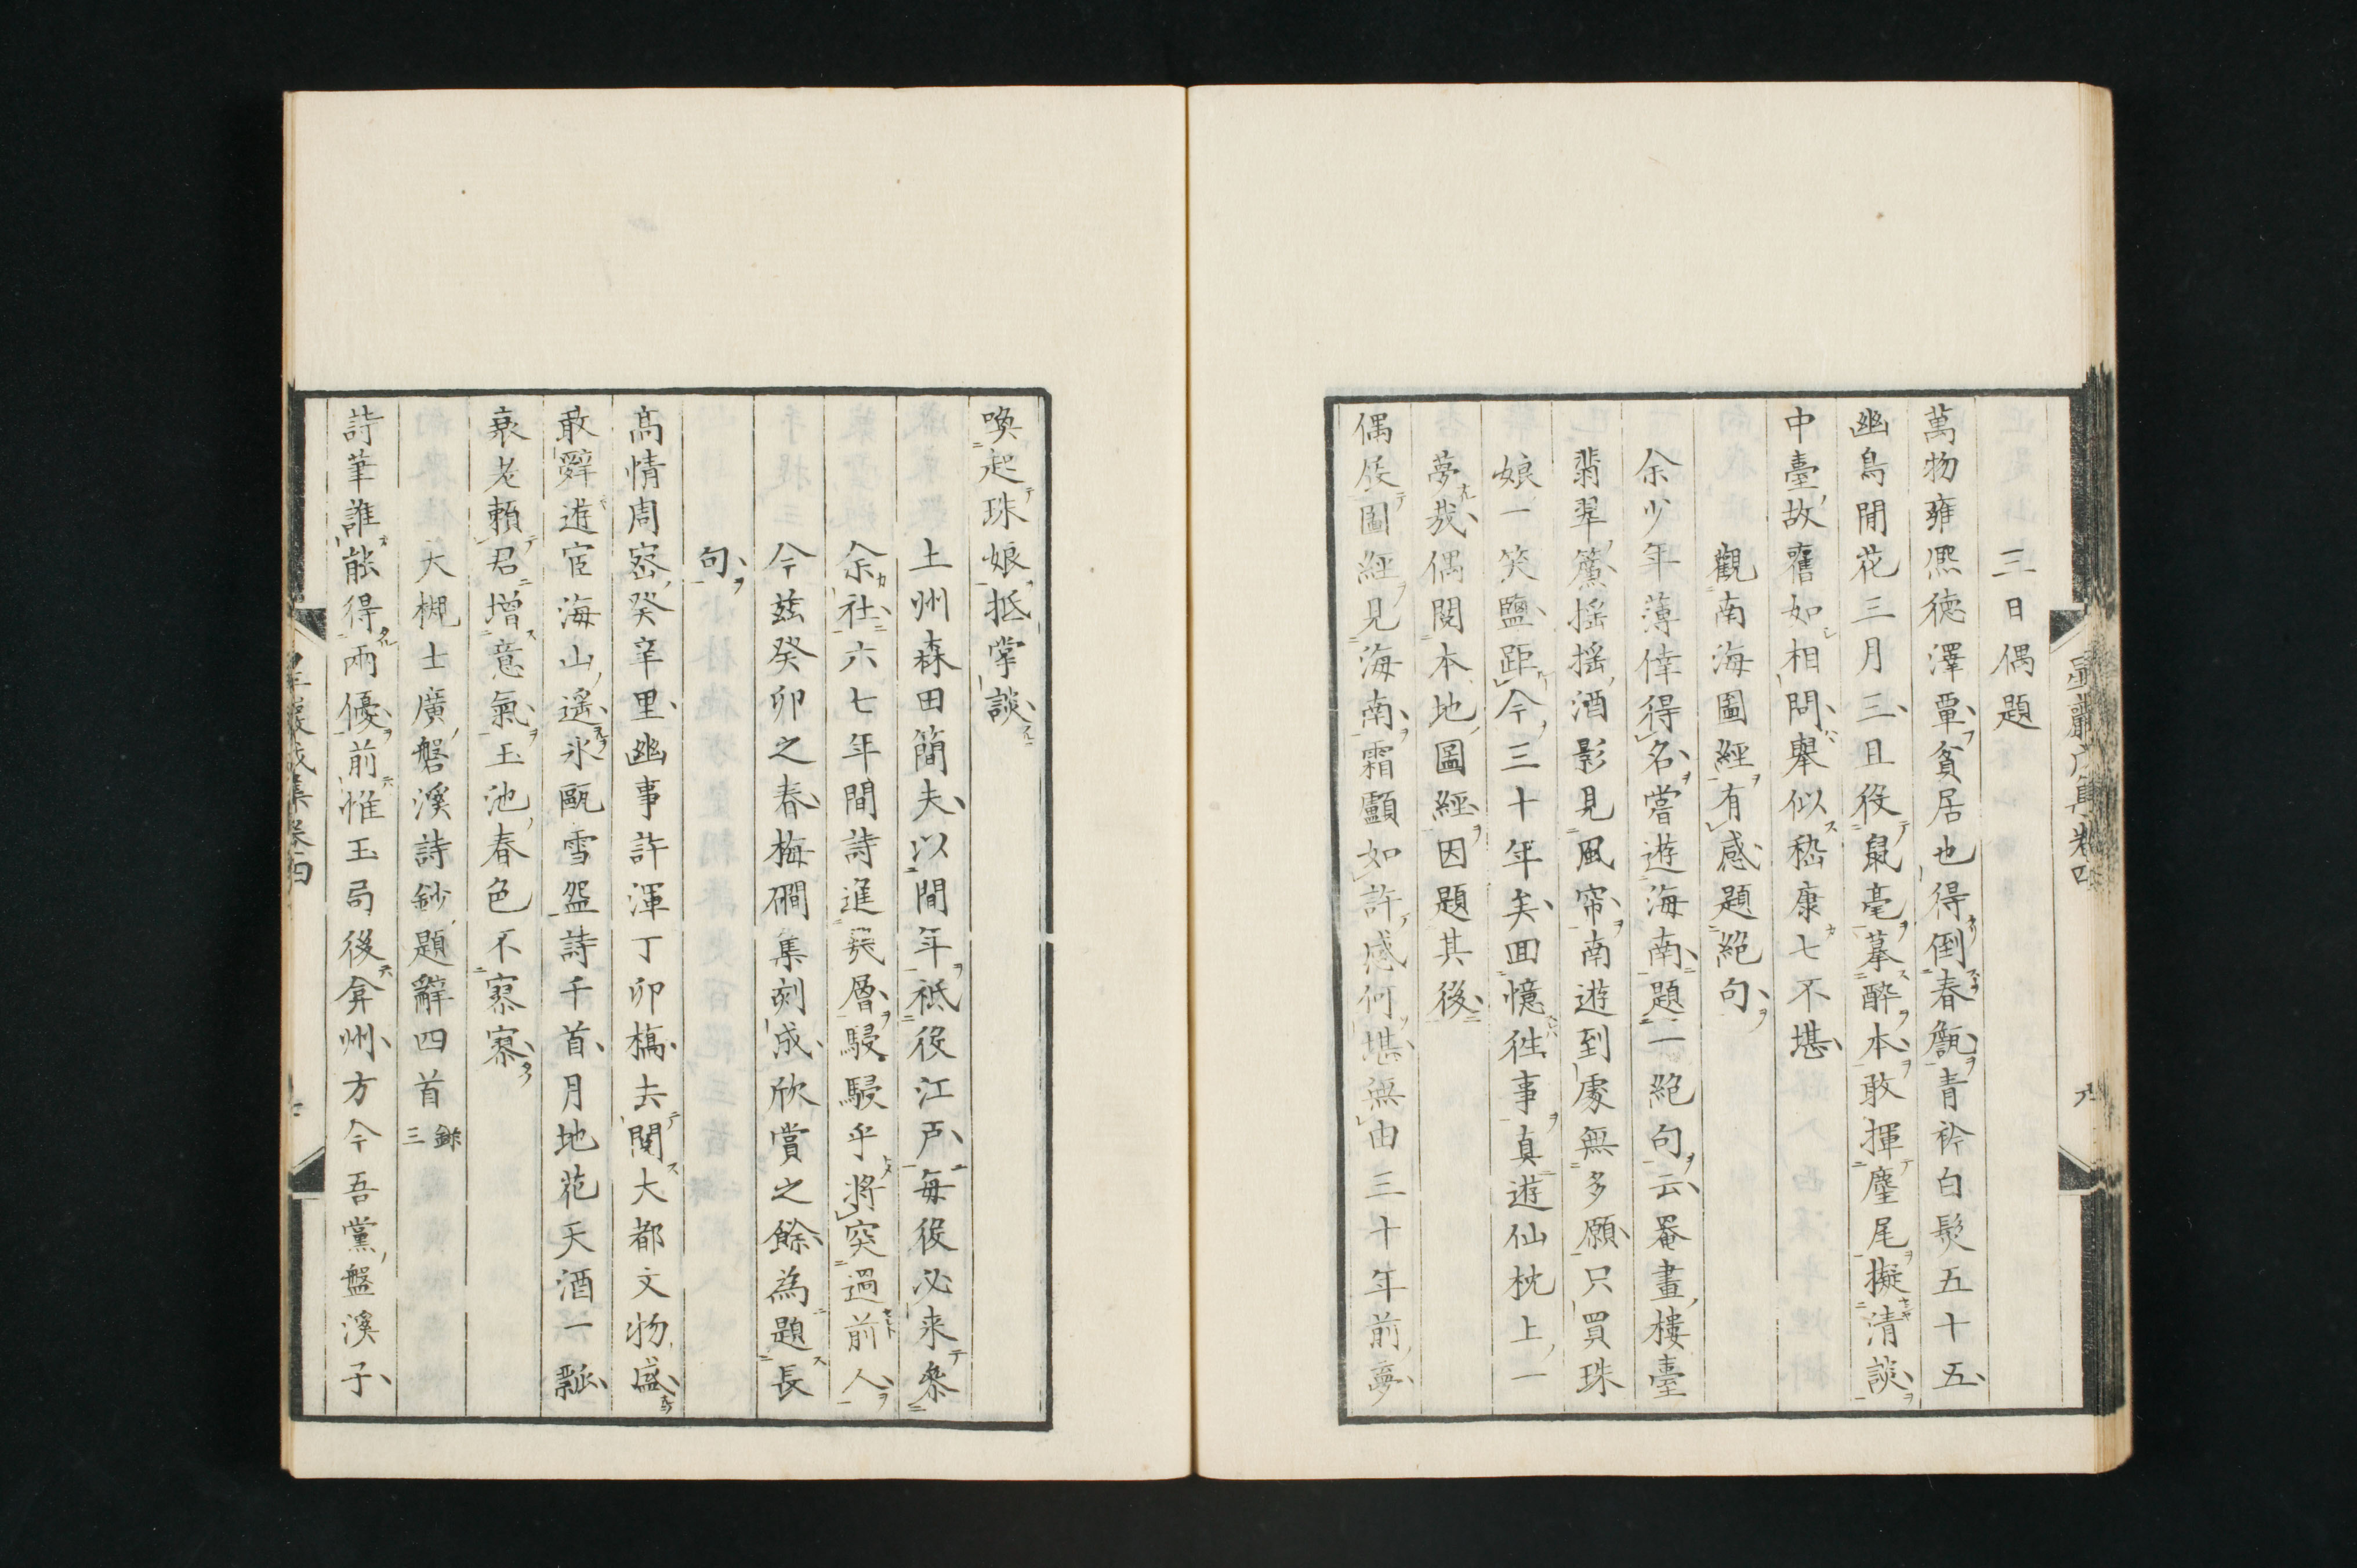 三日偶題
萬物雍熈德澤覃貧居也得倒春甔青衿白髮五十五
幽鳥閒花三月三且役鼠毫摹醉本敢揮麈尾擬清談
中臺故舊如相問擧似嵇康七不堪
觀南海圖經有感題絕句
余少年薄倖得名嘗遊海南題一絕句云罨畫樓臺
翡翠簾搖搖酒影見風帘南遊到處無多願只買珠
娘一笑鹽距今三十年矣回憶徃事真遊仙枕上一
夢哉偶閱本地圖經因題其後
偶展圖經見海南霜顱如許感何堪無由三十年前夢
喚起珠娘抵掌談
上州森田簡夫以間年祗役江戸每役必来叅
余社六七年間詩進矣層駸駸乎將突過前人
今茲癸卯之春梅磵集刻成欣賞之餘為題長
句
髙情周宻癸辛里幽事許渾丁卯橋去閱大都文物盛
敢辭遊宦海山遙氷甌雪盌詩千首月地花天酒一瓢
衰老賴君增意氣玉池春色不寥寥
大槻士廣磐溪詩鈔題辭四首 錄三
詩筆誰能得兩優前惟玉局後弇州方今吾黨盤溪子